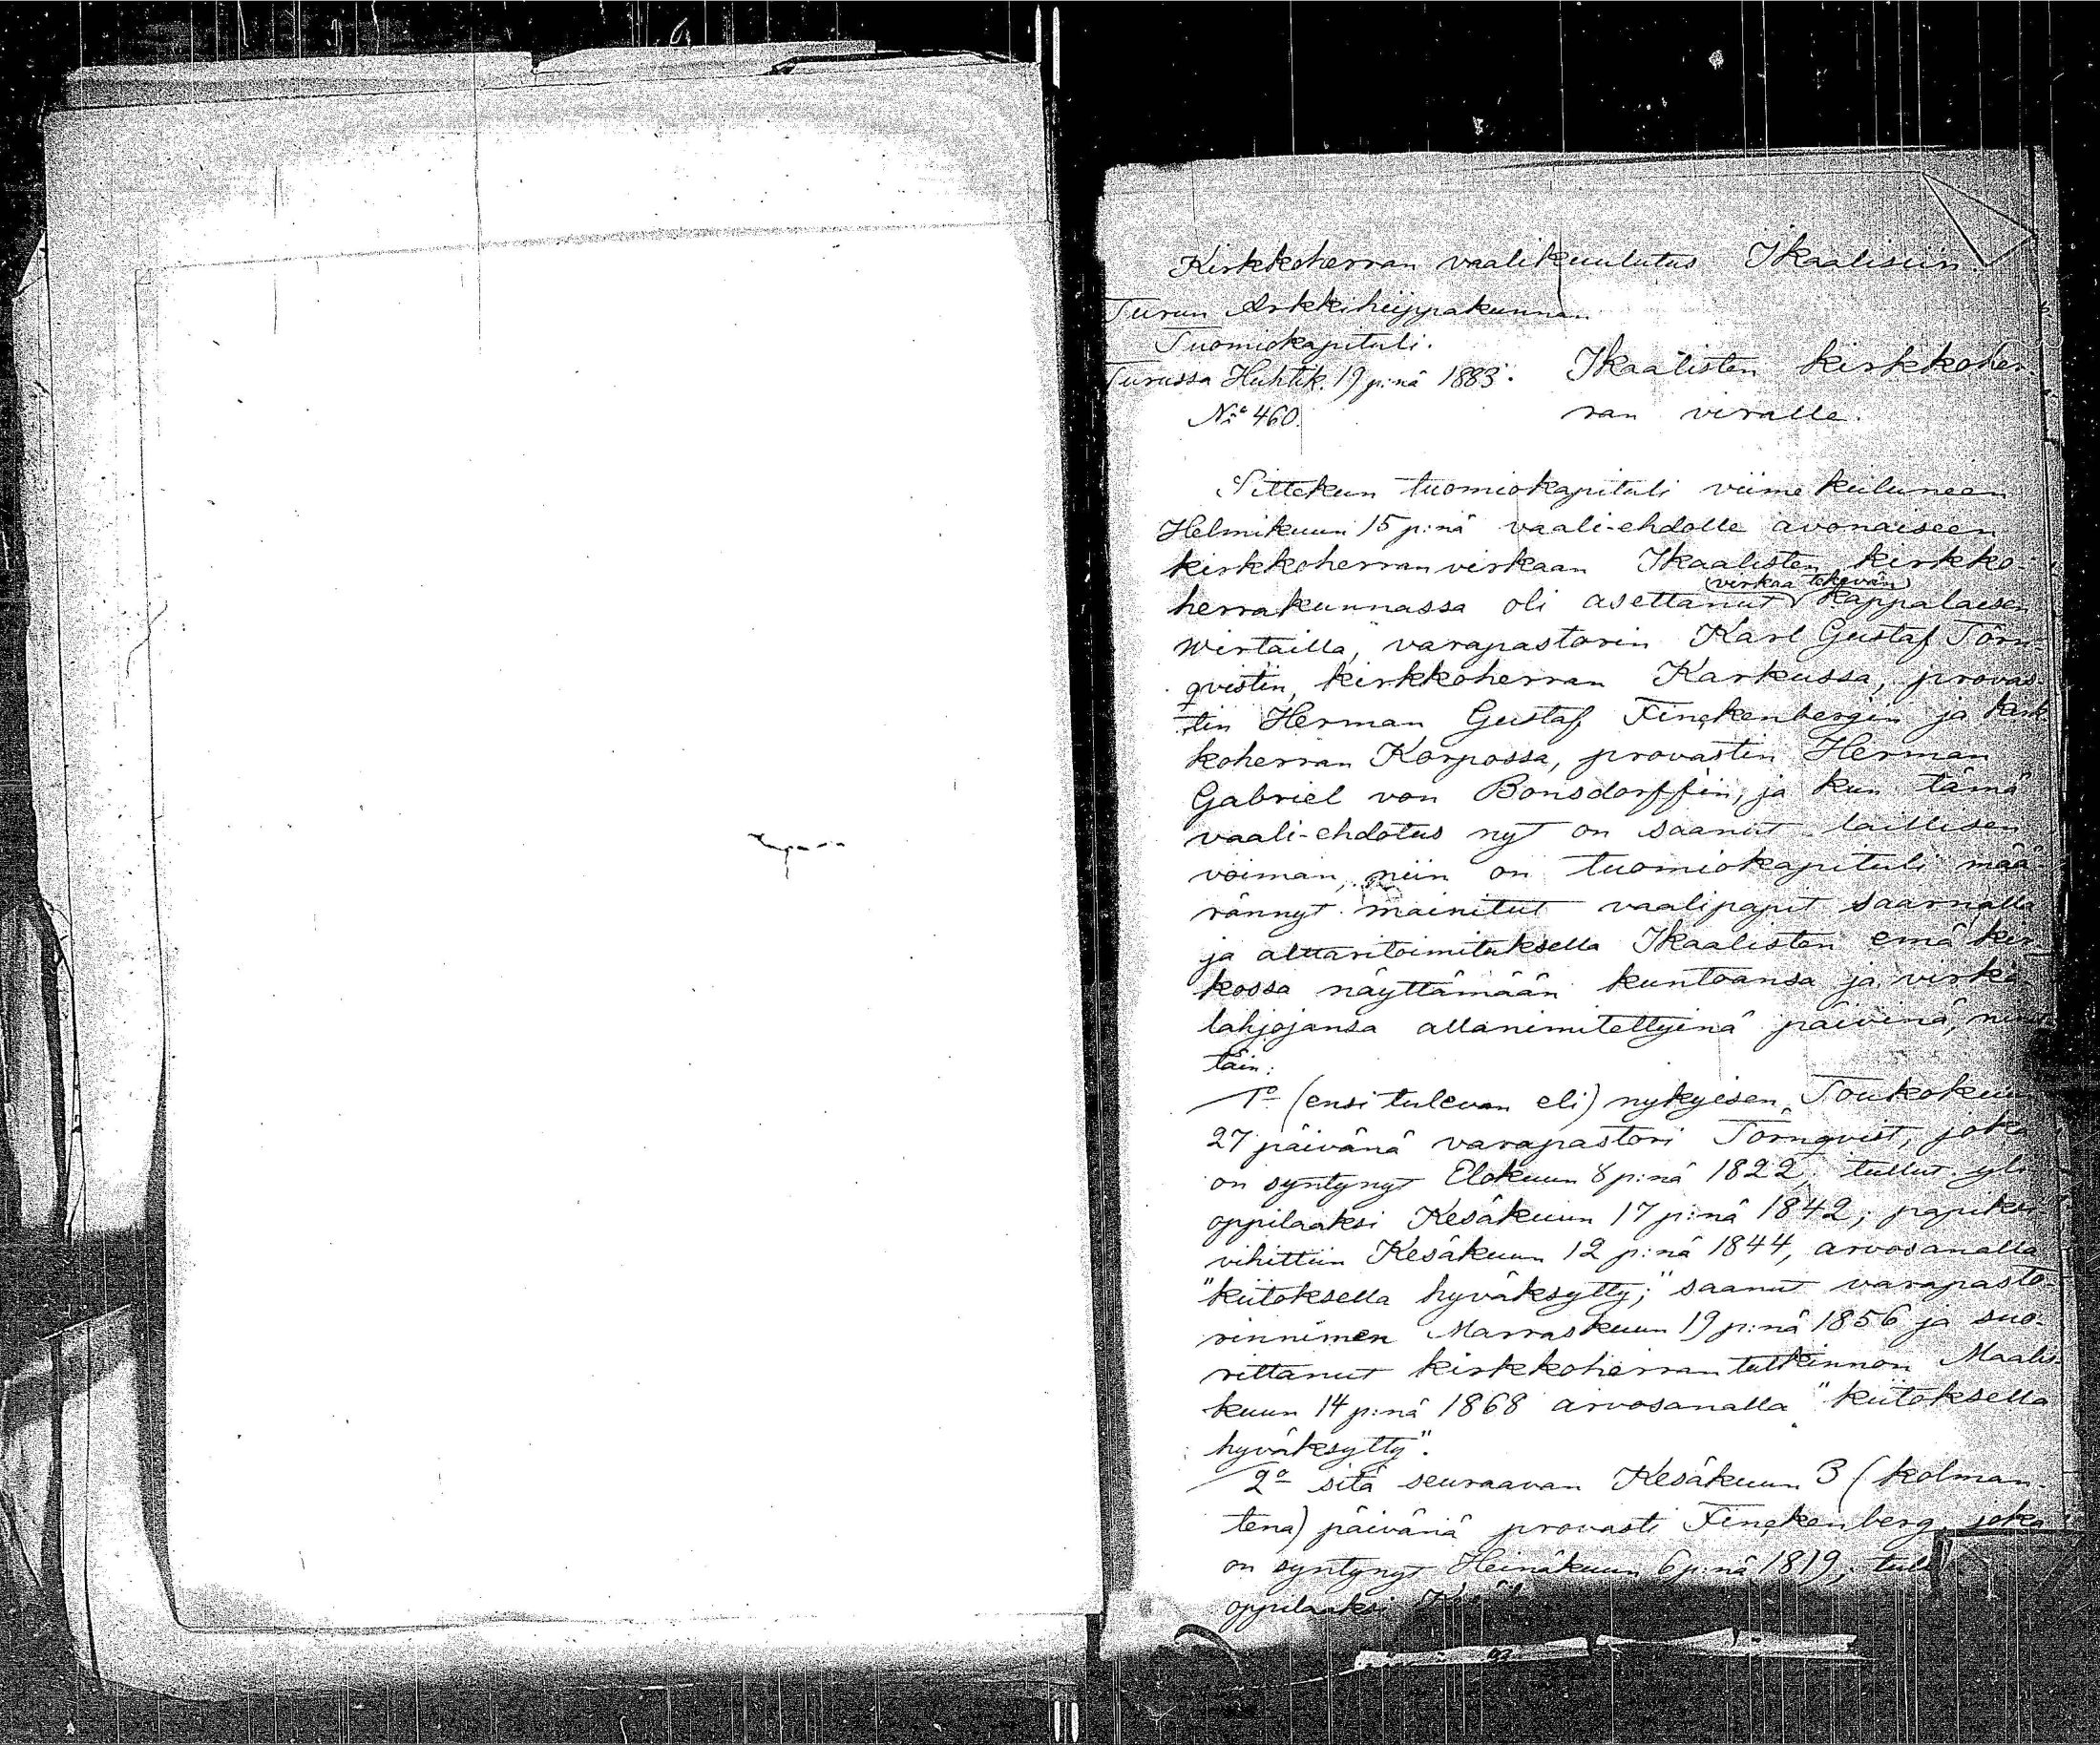 Kirkkoherran vaalikuulutus Ikaalisiin.
Turun Arkkihiippakunnan
Tuomiokapituli.
Turussa Huhtik. 19 p:nä 1883.
No 460.
Ikaalisten kirkkoher-
ran viralle.
Sittekun tuomiokapituli viime kuluneen
Helmikuun 15 p:nä vaali-ehdolle avonaiseen
kirkkoherranvirkaan Ikaalisten kirkko-
(virkaa tekevän)
herrakunnassa oli asettanut kappalaisen
Wirtailla, varapastorin Karl Gustaf Törn-
qvistin, kirkkoherran Karkussa, provas-
tin Herman Gustaf Finckenbergin ja kirk-
koherran Korpossa, provastin Herman
Gabriel von Bonsdorffin, ja kun tämä
vaali-ehdotus nyt on saanut laillisen
voiman, niin on tuomiokapituli mää-
rännyt mainitut vaalipapit saarnalla
ja alttaritoimituksella Ikaalisten emäkir-
kossa näyttämään kuntoansa ja virka-
lahjojansa allanimitettyinä päivinä, nimit-
täin:
1o (ensi tulevan eli) nykyisen Toukokuun
27 päivänä varapastori Törnqvist, joka
on syntynyt Elokuun 8 p:nä 1822; tullut yli-
oppilaaksi Kesäkuun 17 p:nä 1842; papiksi
vihittiin Kesäkuun 12 p:nä 1844, arvosanalla
"kiitoksella hyväksytty;" saanut varapasto-
rinnimen Marraskuun 19 p:nä 1856 ja suo-
rittanut kirkkoherrantutkinnon Maalis-
kuun 14 p:nä 1868 arvosanalla "kiitoksella
hyväksytty".
2o sitä seuraavan Kesäkuun 3 (kolman-
tena) päivänä provasti Finckenberg, joka
on syntynyt Heinäkuun 6 p:nä 1819; tul
oppilaaksi